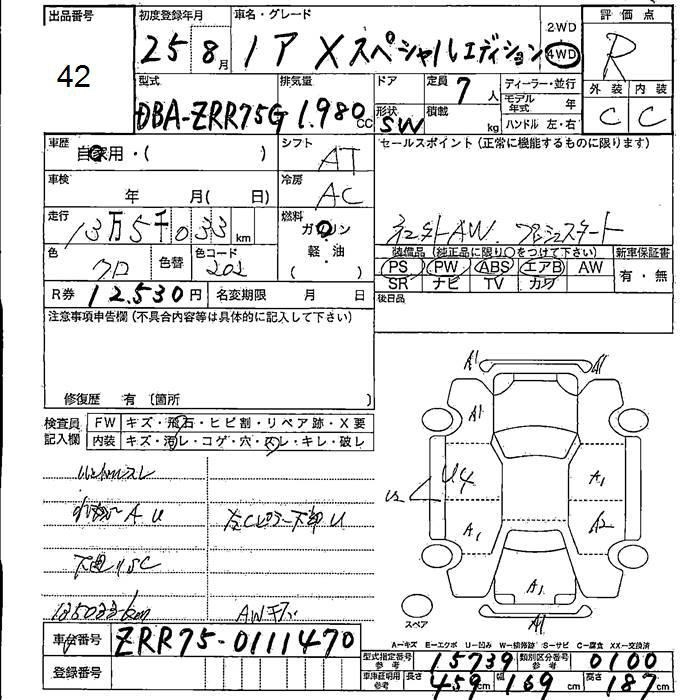 出品番号
42
初度登録年月
25 8月
車名・グレード
ノア Xスペシャルエディション
2WD
4WD
評価点
R
外装 内装
C C
型式
DBA-ZRR75G
排気量
1.980cc
ドア
形状
SW
定員
7人
積載
kg
ディーラー・並行
モデル年式 年
ハンドル 左・右
車歴
自家用・( )
シフト
AT
セールスポイント(正常に機能するものに限ります)
車検
年 月( 日)
冷房
AC
走行
13万5千033km
燃料
ガソリン
軽・油
( )
社外AW. プッシュスタート
色
クロ
色替
色コード
202
装備品(純正品に限り○をつけて下さい)
PS PW ABS エアB AW
SR ナビ TV カワ
新車保証書
有・無
R券 12.530円
名変期限 月 日
後日品
注意事項申告欄(不具合内容等は具体的に記入して下さい)
修復歴 有〔箇所 〕
検査員記入欄
FW キズ・飛石・ヒビ割・リペア跡・X要
内装 キズ・汚レ・コゲ・穴・スレ・キレ・破レ
A U
左Cピラー下部U
下廻りSC
135033km
AWキズ
A1 A1
A1
U4
A1
A1
A2
A1
A1
スペア
A-キズ E-エクボ U-凹み W-補修跡 S-サビ C-腐食 XX-交換済
車台番号 ZRR75-0111470
登録番号
型式指定番号 参考 15739
類別区分番号 参考 0100
車庫証明用 参考 長さ 459cm 幅 169cm 高さ 187cm